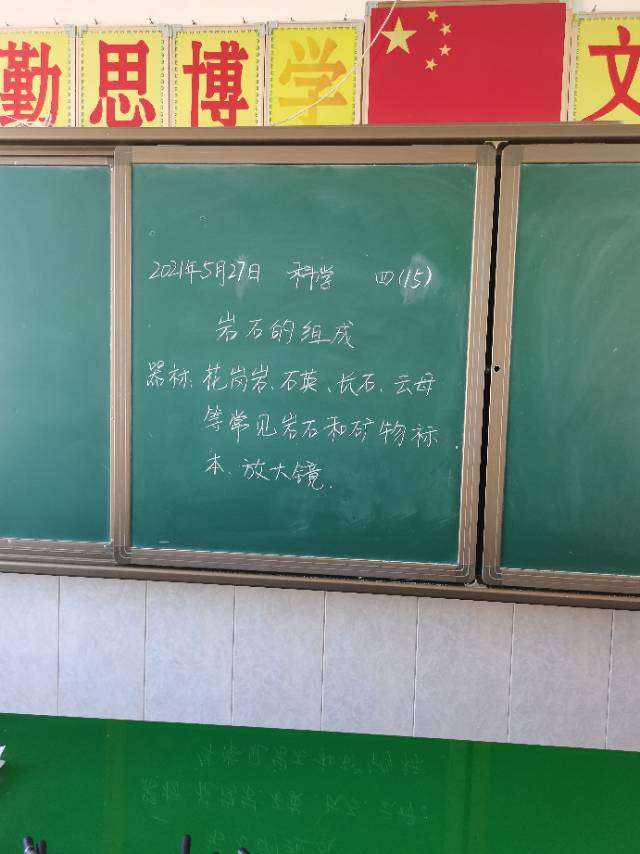 勤思博学
文
2021年5月27日 科学 四(15)
岩石的组成
器材:花岗岩、石英、长石、云母
等常见岩石和矿物标
本、放大镜.